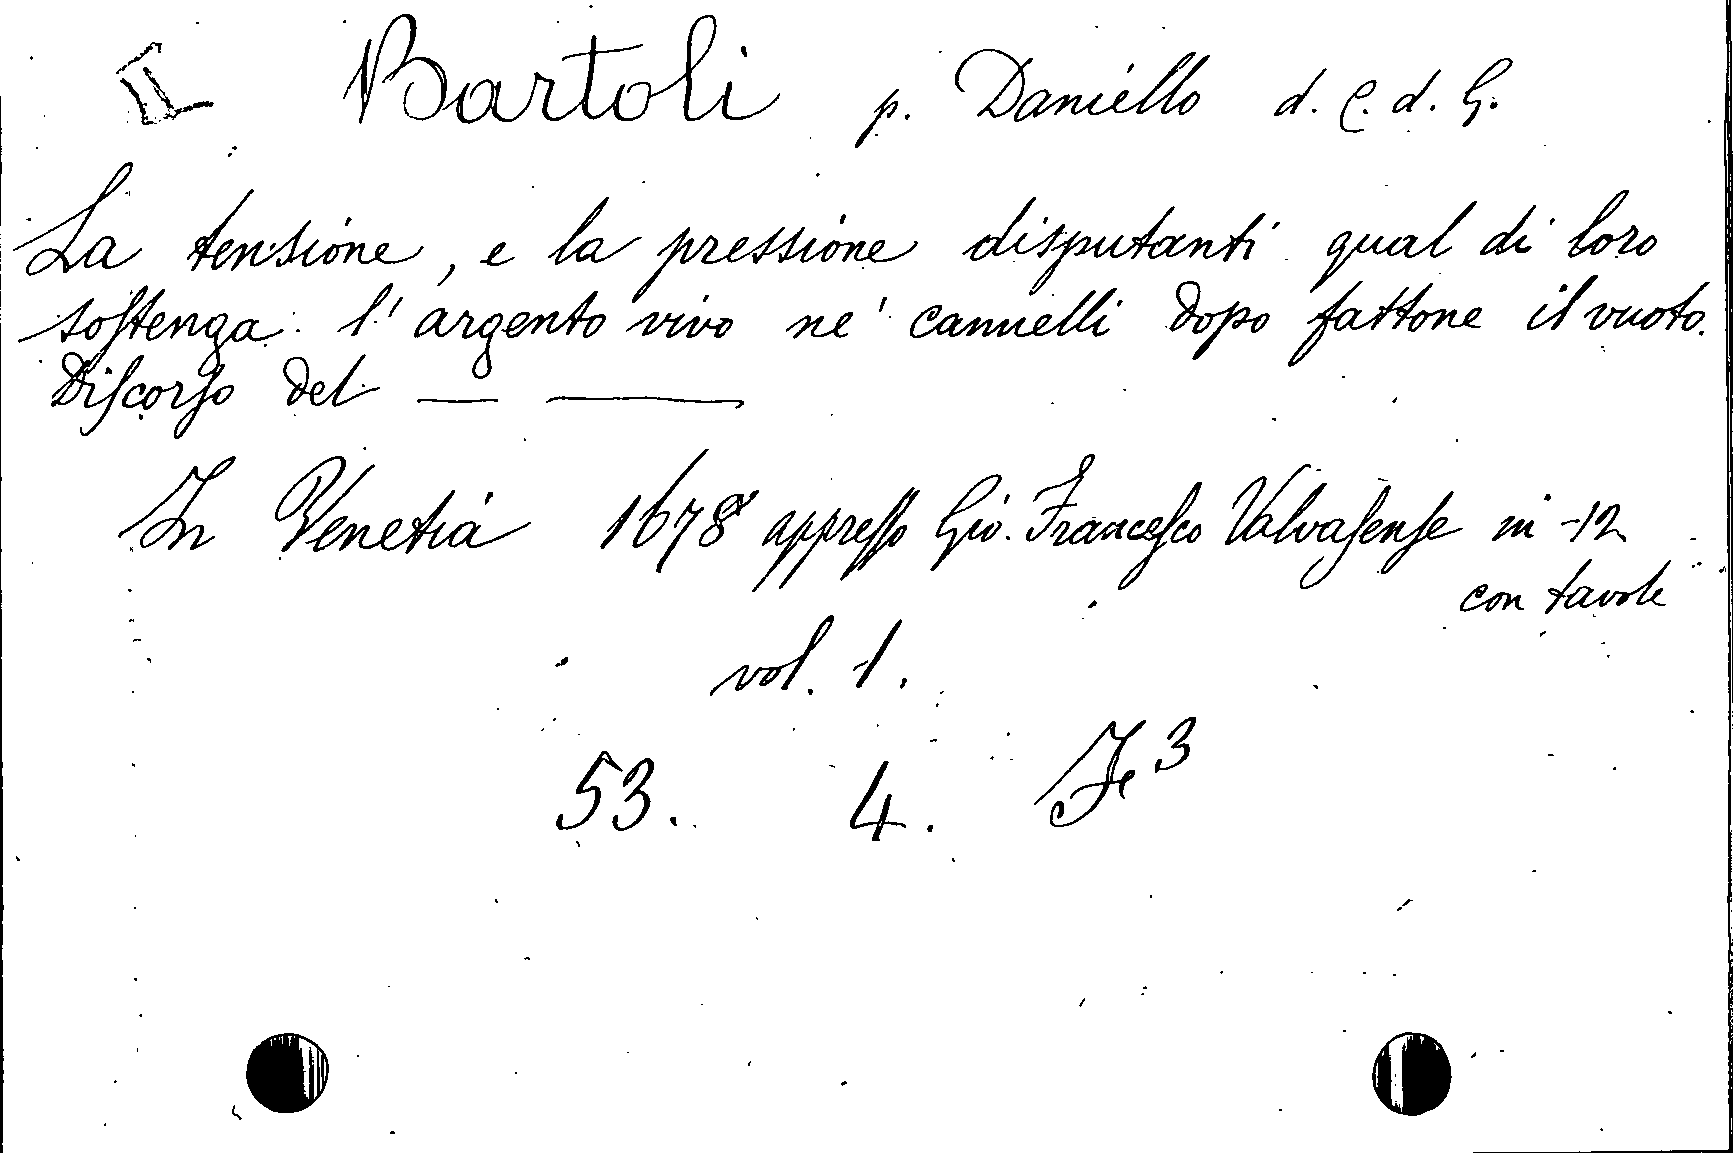 II Bartoli p. Daniello d. C. d. G.
La tensione, e la pressione disputanti qual di loro
softenga l'argento vivo ne' cannelli dopo fattone il vuoto.
Difcorfo del — —
In Venetia 1678 appreffo Gio. Francefco Valvafenfe in -12
con tavole
vol. 1.
53. 4. F 3